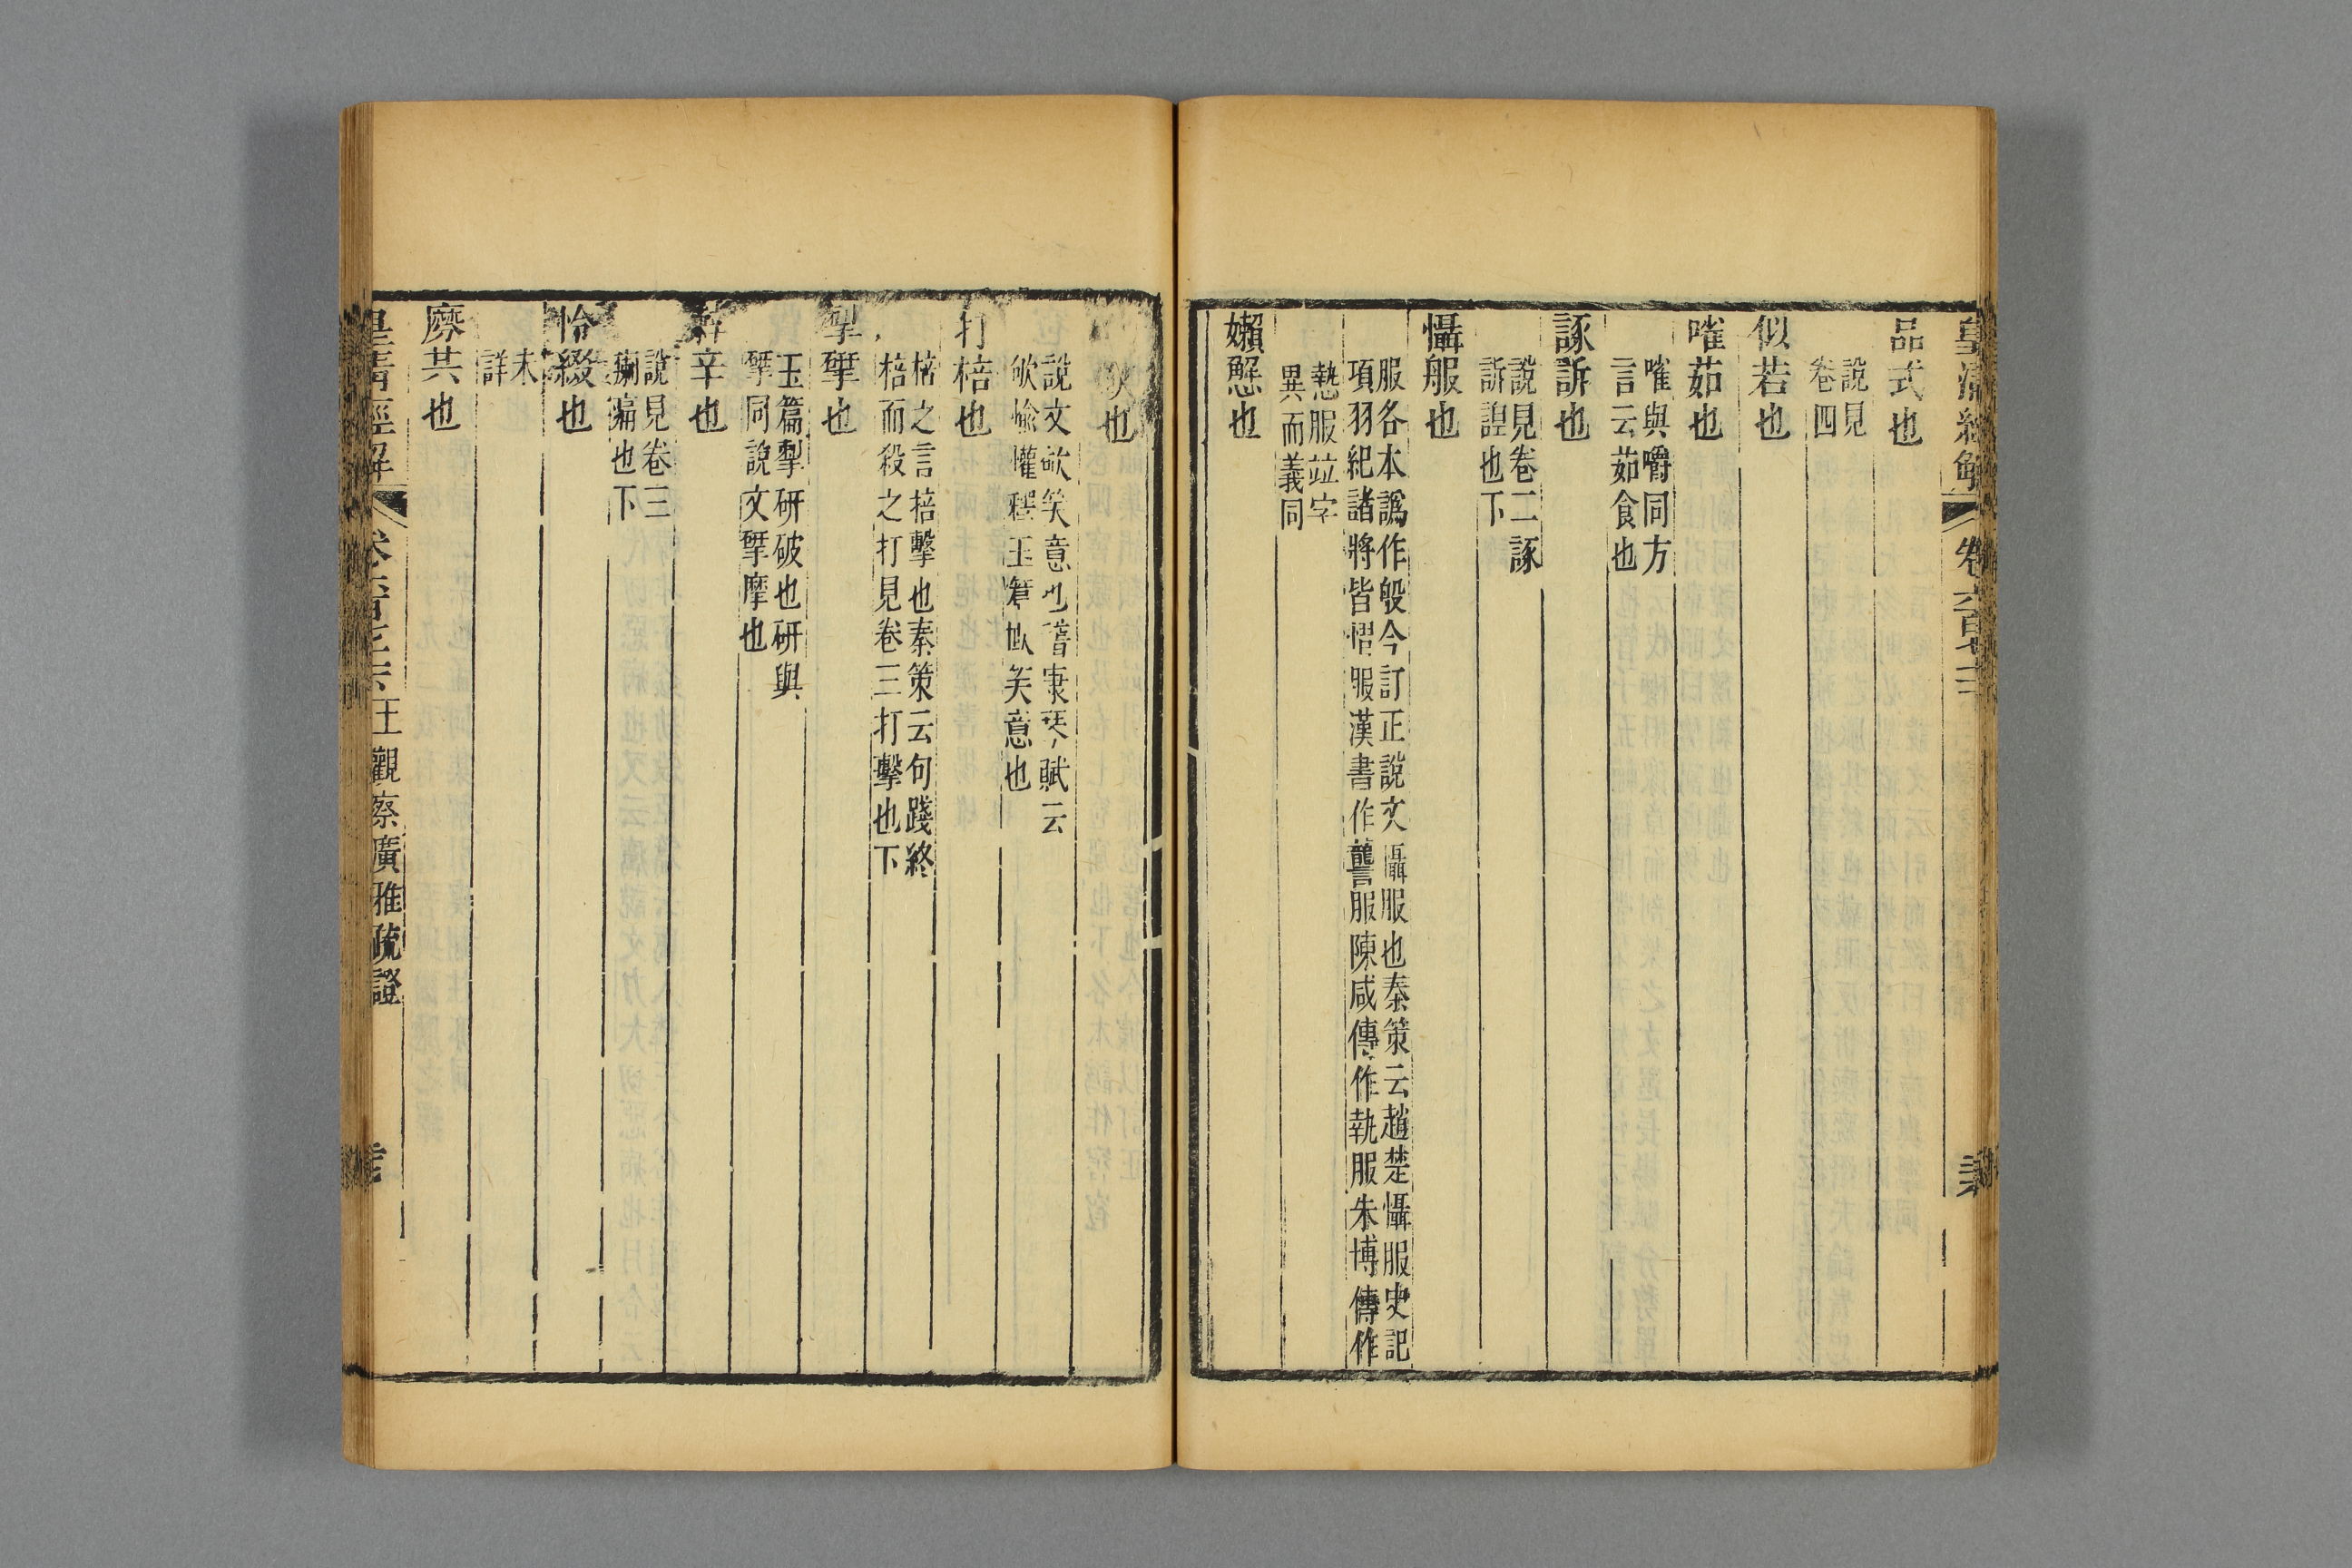 皇清經解 卷六百七十一
品式也
說見
卷四
似若也
嗺茹也
嗺與嚼同方
言云茹食也
諑訴也
說見卷二諑
訴諻也下
懾服也
服各本譌作般今訂正說文懾服也秦策云趙楚懾服史記
項羽紀諸將皆慴服漢書作讋服陳咸傳作執服朱博傳作
慹服竝字
異而義同
嬾懈也
也
說文欨笑意也嵇康琴賦云
欨愉懽釋玉篇㰤笑意也
打棓也
棓之言掊擊也秦策云句踐終
棓而殺之打見卷三打擊也下
揅也
玉篇揅研破也研與
揅同說文揅摩也
辛也
說見卷三
瘌痛也下
怡綴也
未
詳
磨共也
皇清經解 王觀察廣雅疏證